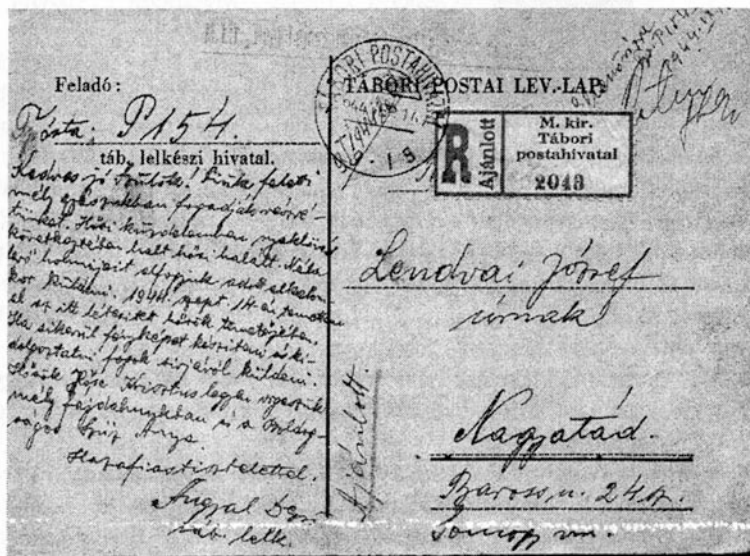 Feladó:
Tábori P154.
táb. lelkészi hivatal.
Kedves jó Szülők! Fiuk feletti
mély gyászukban fogadják részvé-
tünket. Hősi küzdelemben nyaklövés
következtében halt hősi halált. Nála
levő holmijait elfogjuk adott alkalom-
kor küldeni. 1944. szept. 14-én temettem
el az itt létesített hősök temetőjében.
Ha sikerül fényképet készíteni és ki-
dolgoztatni fogok sírjáról küldeni.
Hősök Hőse Krisztus legyen vigaszuk
mély fájdalmukban és a Boldog-
ságos Szűz Anya.
Hazafias tisztelettel.
Angyal
táb. lelk.
TÁBORI POSTAHIVATAL
TÁBORI POSTAI LEV.-LAP.
P154
1944.
R
Ajánlott
M. kir.
Tábori
postahivatal
2043
Lendvai József
úrnak
Ajánlott.
Nagyatád.
Baross u. 24
Somogy vm.